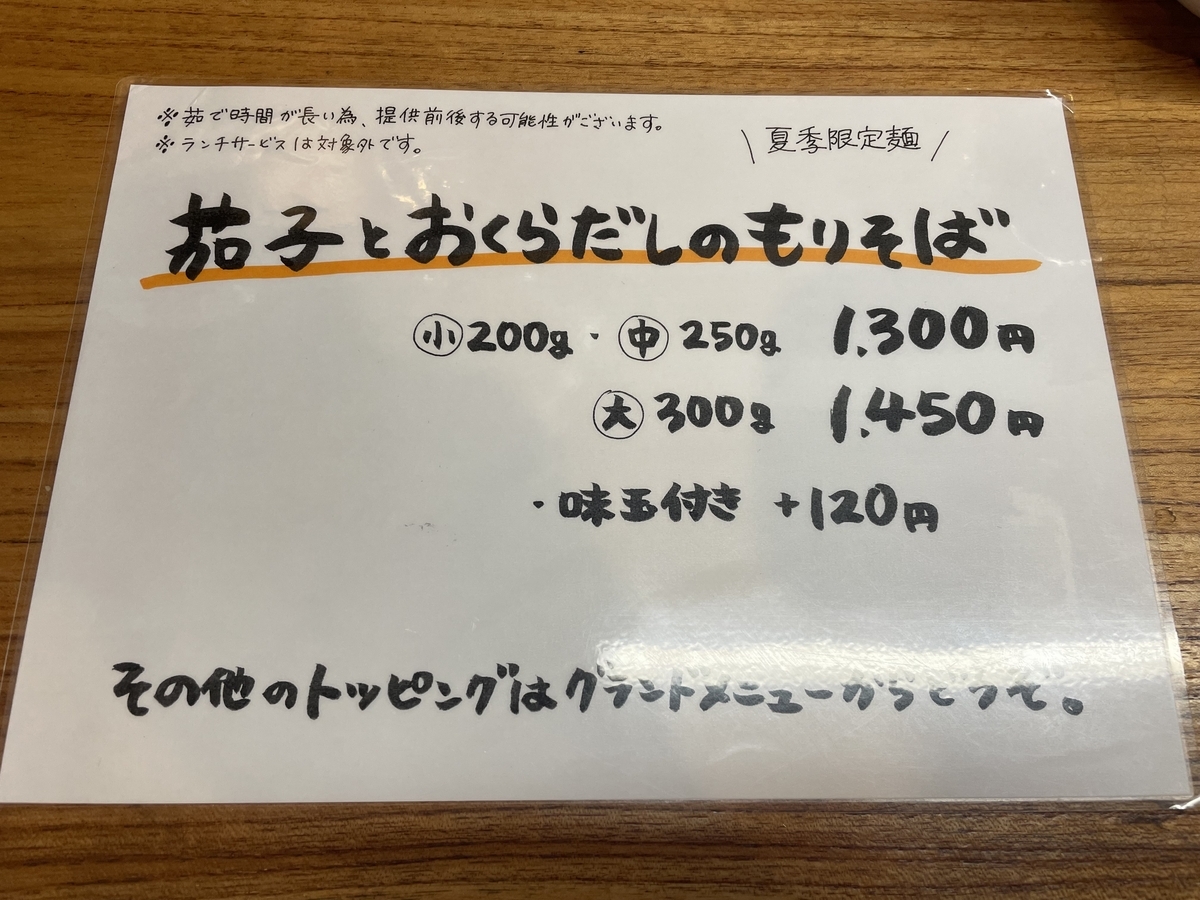 ※茹で時間が長い為、提供前後する可能性がございます。
※ランチサービスは対象外です。
\夏季限定麺/
茄子とおくらだしのもりそば
㊥小 200g・㊥ 250g 1.300円
大 300g 1.450円
・味玉付き +120円
その他のトッピングはグランドメニューからどうぞ。